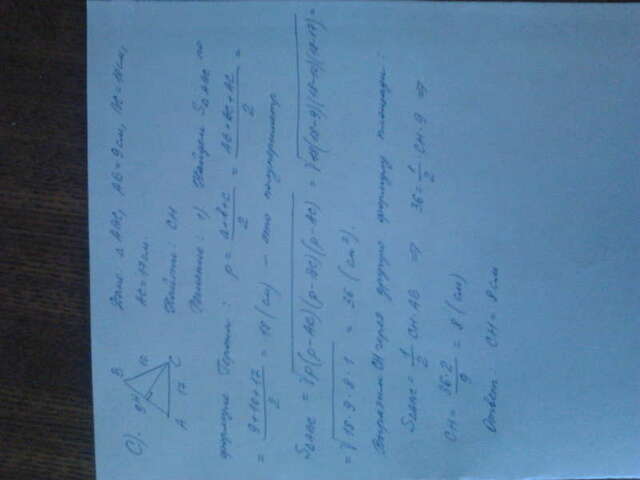 C).
B
9
H
10
A
17
C
Дано: △ ABC, AB = 9 см, BC = 10 см,
AC = 17 см.
Найти: CH
Решение: 1) Найдём S△ABC по
формуле Герона: p = (a+b+c)/2 = (AB+BC+AC)/2 =
= (9+10+17)/2 = 18 (см) – это полупериметр
S△ABC = √p(p-AB)(p-BC)(p-AC) = √18(18-9)(18-10)(18-17) =
= √18·9·8·1 = 36 (см²).
Выразим CH через другую формулу площади:
S△ABC = 1/2 CH·AB ⇒ 36 = 1/2 · CH · 9 ⇒
CH = 36·2/9 = 8 (см)
Ответ: CH = 8 см